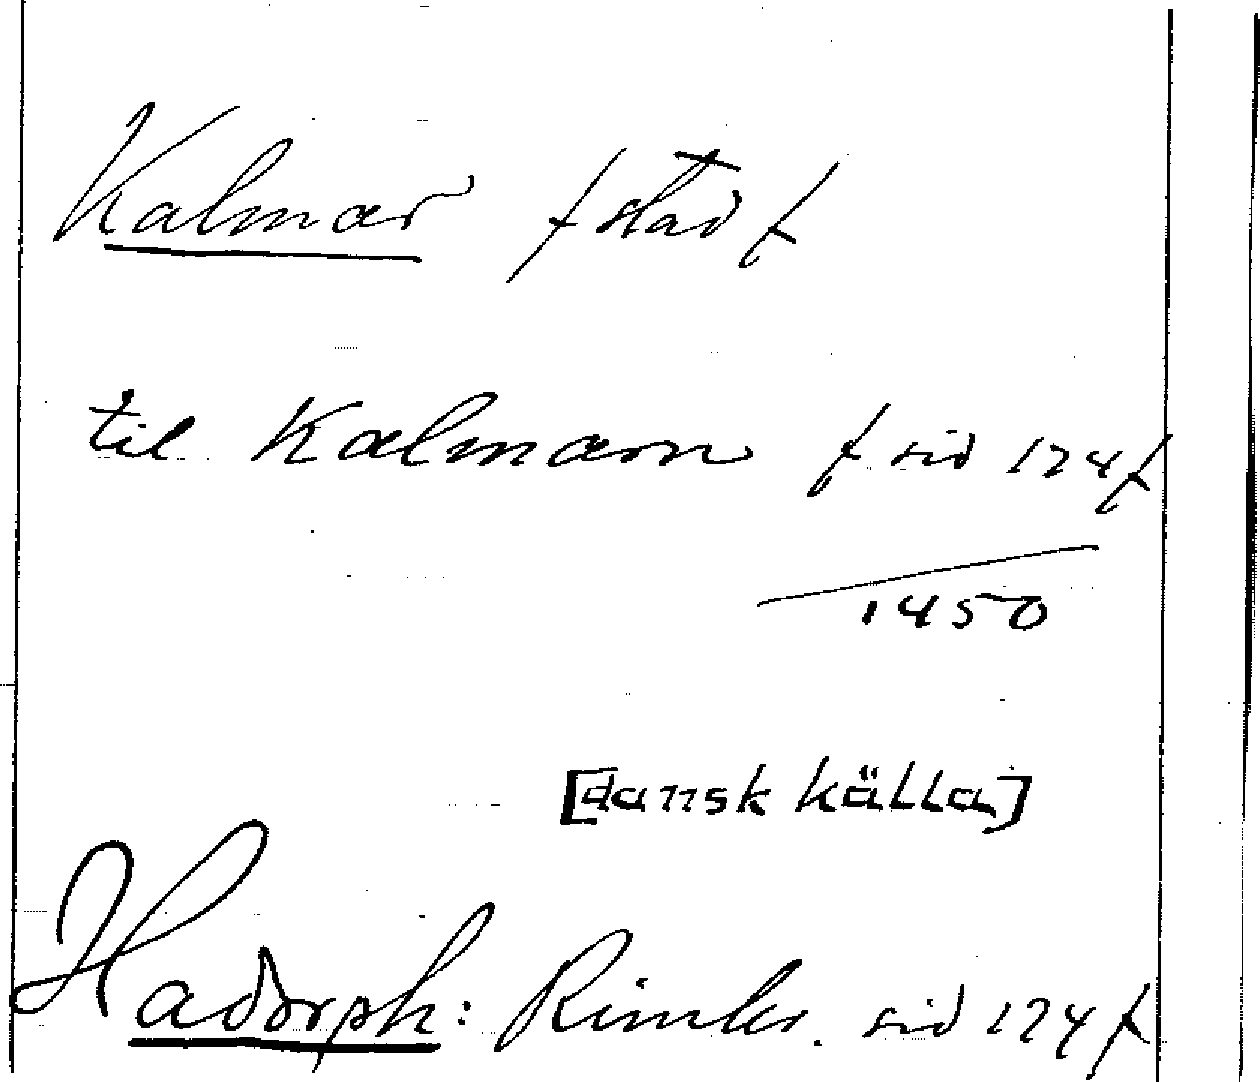 Kalmar /stad/
til Kalmarn /sid 124/
1450
[dansk källa]
Hadorph: Rimkr. sid 124/